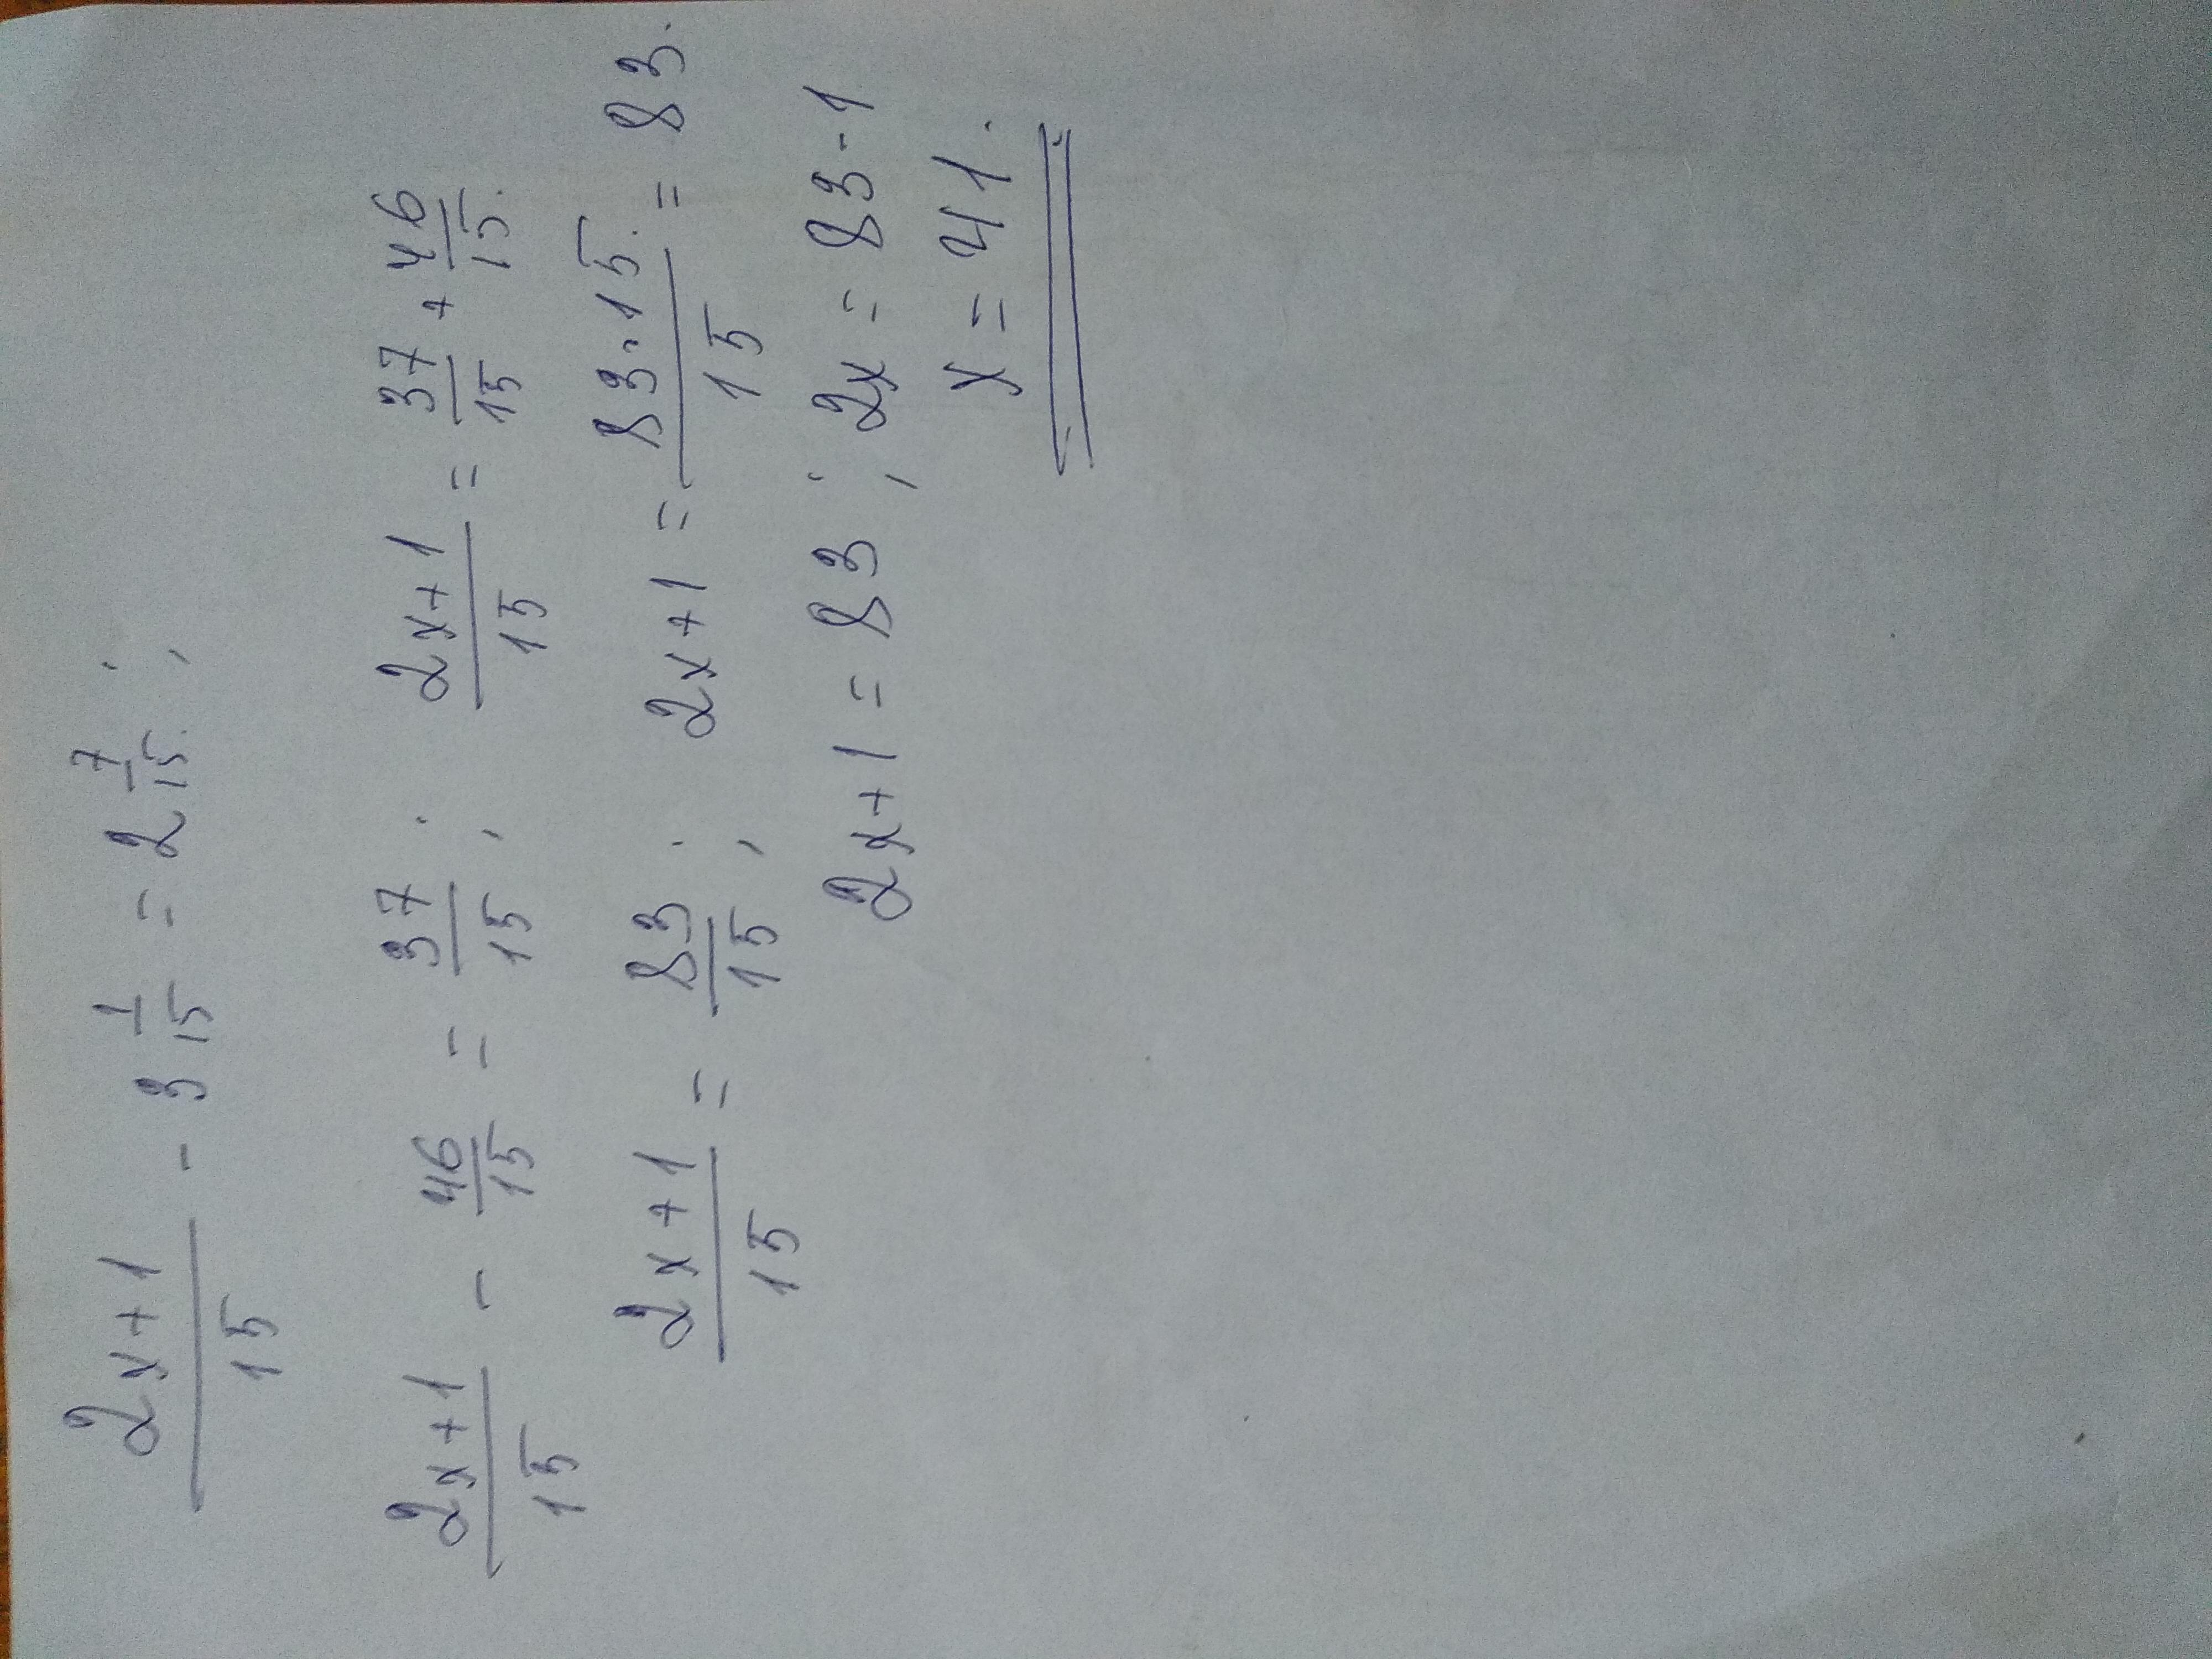 (2x+1)/15 - 3 1/15 = 2 7/15. ;
(2x+1)/15 - 46/15 = 37/15 ; (2x+1)/15 = 37/15 + 46/15.
(2x+1)/15 = 83/15 ; 2x+1 = (83·15.)/15 = 83.
2x+1 = 83 ; 2x = 83-1
x = 41.